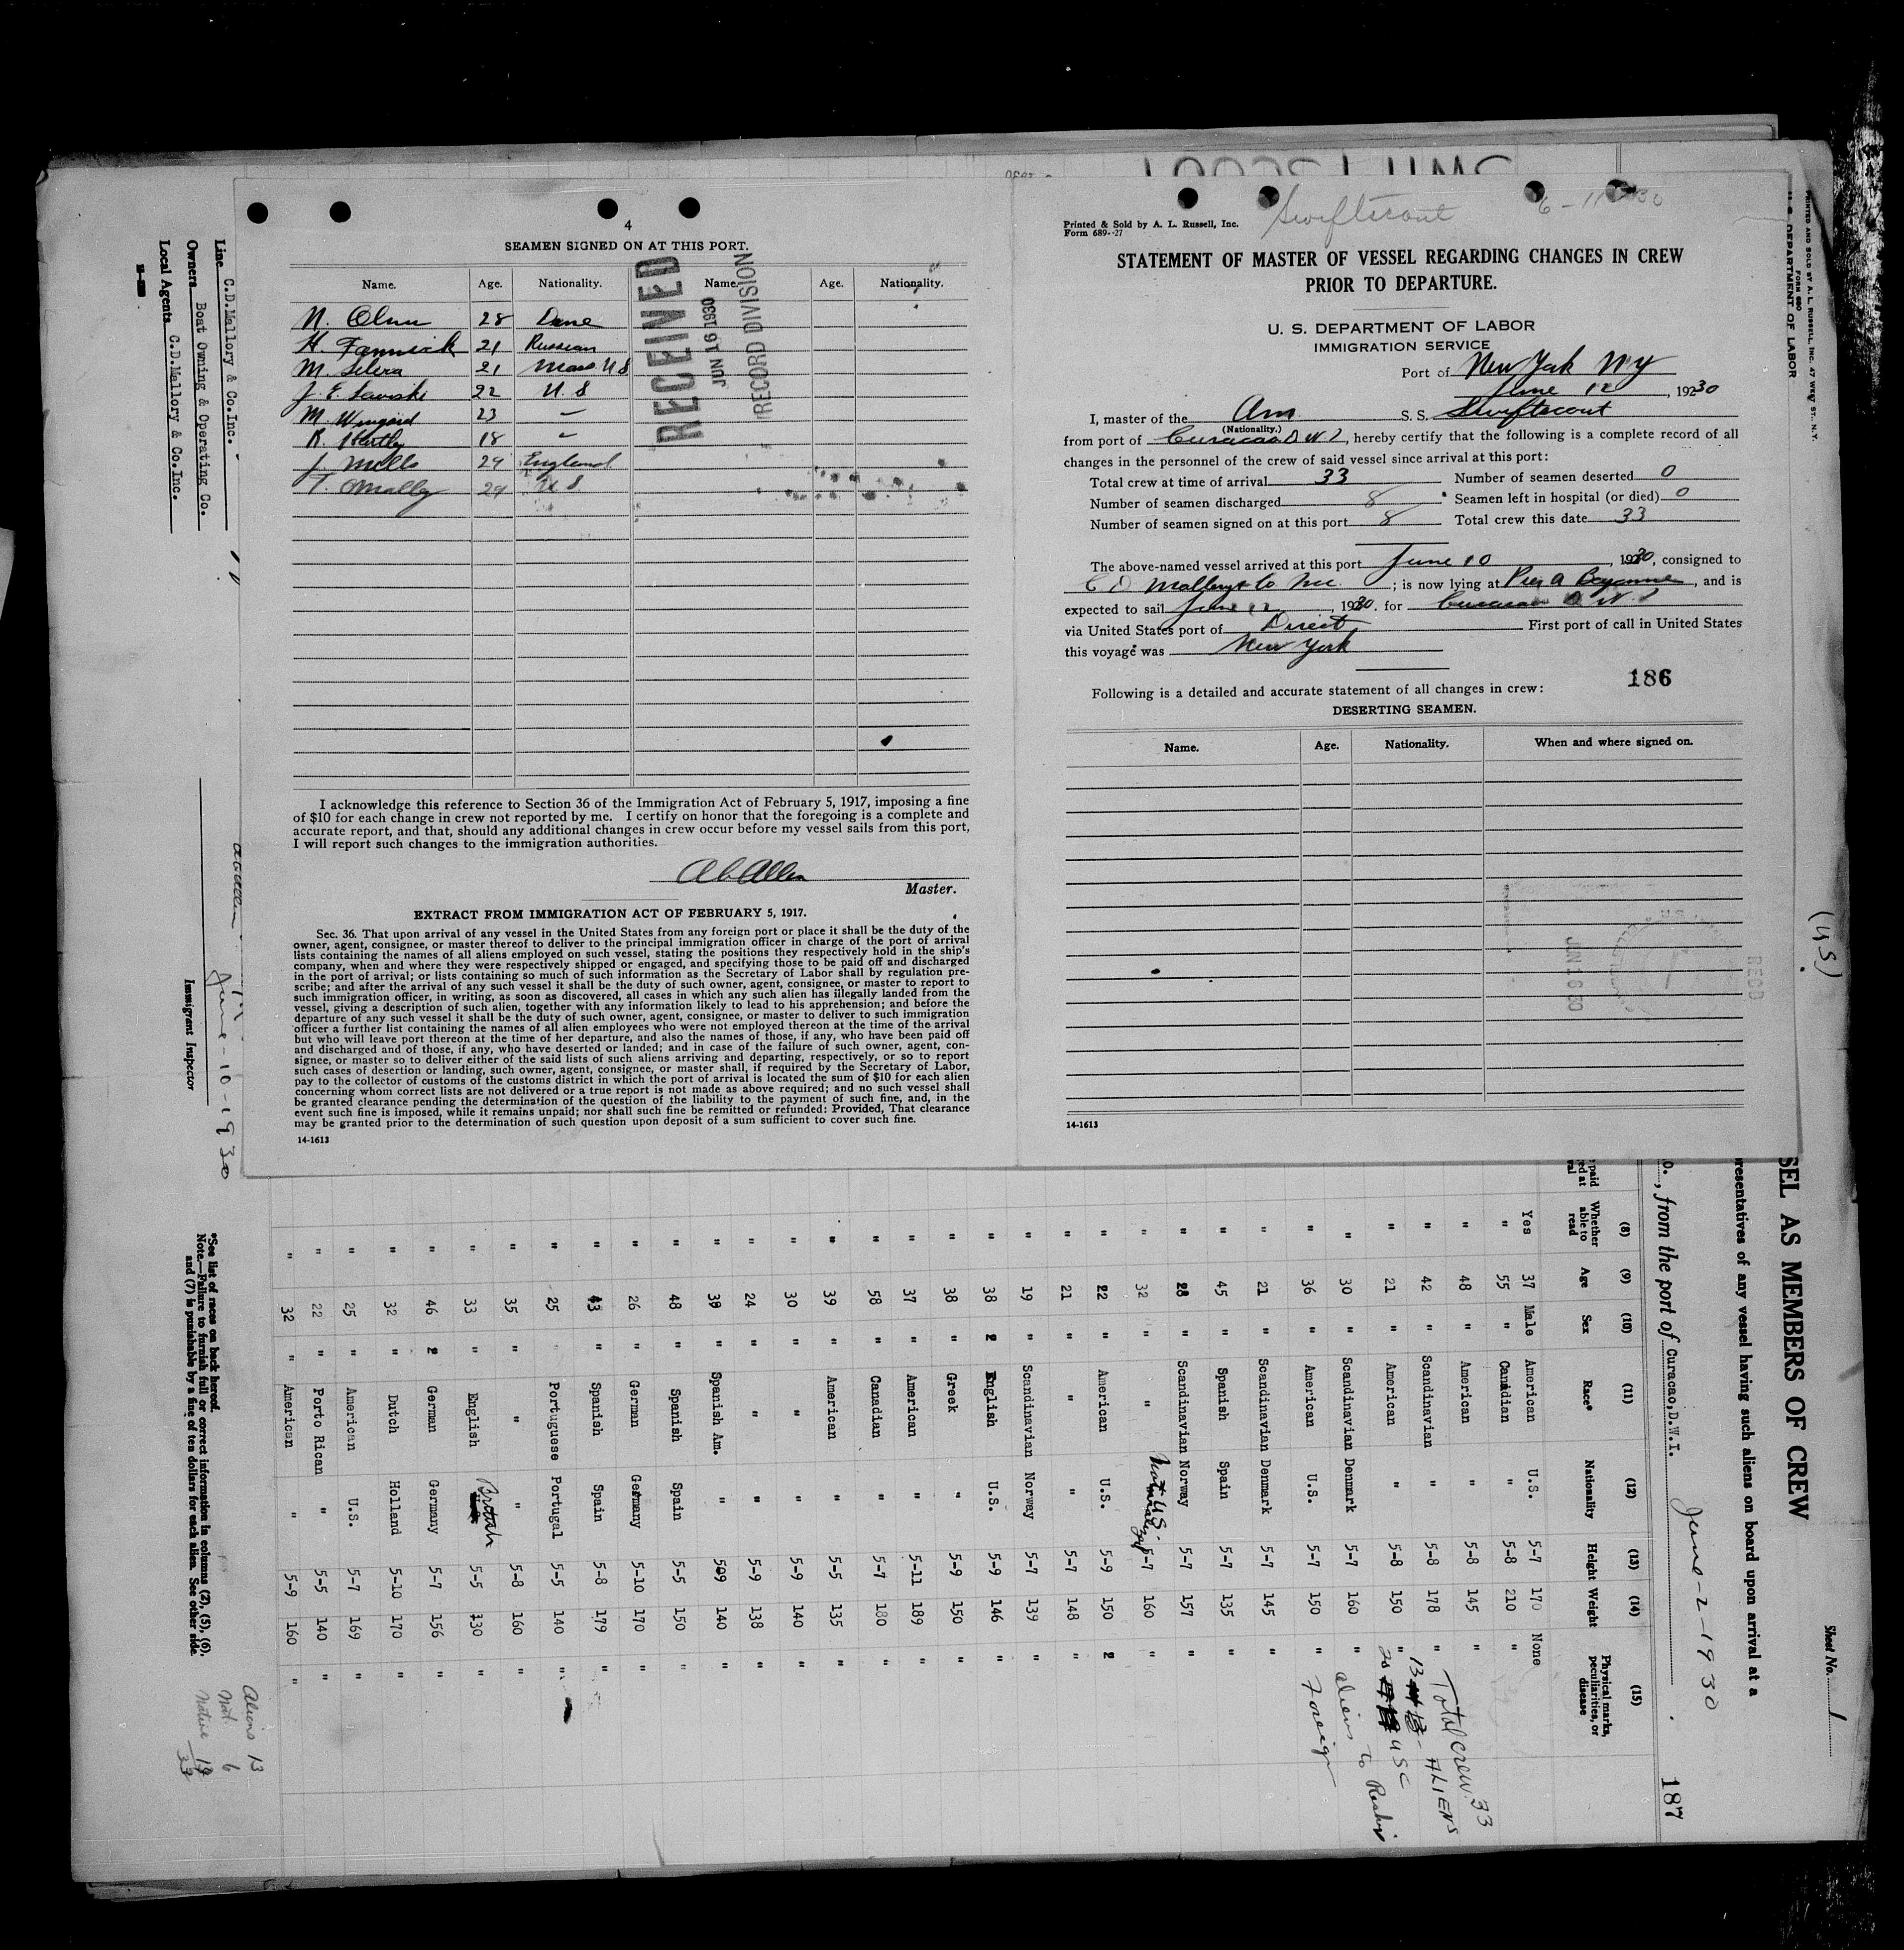 SWIFTSCOUT
4
SEAMEN SIGNED ON AT THIS PORT.
Name. Age. Nationality. Name. Age. Nationality.
N. Olsen 28 Dane
H. 21 Russian
M. Silvia 21 Mass U S
J. E. Saviski 22 U. S
M. Wingard 23 –
R. Hartley 18 –
J. Mills 29 England
T. OMalley 29 U S
RECEIVED
JUN 16 1930
RECORD DIVISION
I acknowledge this reference to Section 36 of the Immigration Act of February 5, 1917, imposing a fine
of $10 for each change in crew not reported by me. I certify on honor that the foregoing is a complete and
accurate report, and that, should any additional changes in crew occur before my vessel sails from this port,
I will report such changes to the immigration authorities.
Allen
Master.
EXTRACT FROM IMMIGRATION ACT OF FEBRUARY 5, 1917.
Sec. 36. That upon arrival of any vessel in the United States from any foreign port or place it shall be the duty of the
owner, agent, consignee, or master thereof to deliver to the principal immigration officer in charge of the port of arrival
lists containing the names of all aliens employed on such vessel, stating the positions they respectively hold in the ship's
company, when and where they were respectively shipped or engaged, and specifying those to be paid off and discharged
in the port of arrival; or lists containing so much of such information as the Secretary of Labor shall by regulation pre-
scribe; and after the arrival of any such vessel it shall be the duty of such owner, agent, consignee, or master to report to
such immigration officer, in writing, as soon as discovered, all cases in which any such alien has illegally landed from the
vessel, giving a description of such alien, together with any information likely to lead to his apprehension; and before the
departure of any such vessel it shall be the duty of such owner, agent, consignee, or master to deliver to such immigration
officer a further list containing the names of all alien employees who were not employed thereon at the time of the arrival
but who will leave port thereon at the time of her departure, and also the names of those, if any, who have been paid off
and discharged and of those, if any, who have deserted or landed; and in case of the failure of such owner, agent, con-
signee, or master so to deliver either of the said lists of such aliens arriving and departing, respectively, or so to report
such cases of desertion or landing, such owner, agent, consignee, or master shall, if required by the Secretary of Labor,
pay to the collector of customs of the customs district in which the port of arrival is located the sum of $10 for each alien
concerning whom correct lists are not delivered or a true report is not made as above required; and no such vessel shall
be granted clearance pending the determination of the question of the liability to the payment of such fine, and, in the
event such fine is imposed, while it remains unpaid; nor shall such fine be remitted or refunded: Provided, That clearance
may be granted prior to the determination of such question upon deposit of a sum sufficient to cover such fine.
14-1613
Swiftscout 6-11-30
Printed & Sold by A. L. Russell, Inc.
Form 689--27
STATEMENT OF MASTER OF VESSEL REGARDING CHANGES IN CREW
PRIOR TO DEPARTURE.
U. S. DEPARTMENT OF LABOR
IMMIGRATION SERVICE
Port of New York N Y
June 12, 1930
I, master of the Am. S. S. Swiftscout
(Nationality.)
from port of Curacao D W I, hereby certify that the following is a complete record of all
changes in the personnel of the crew of said vessel since arrival at this port:
Total crew at time of arrival 33 Number of seamen deserted 0
Number of seamen discharged 8 Seamen left in hospital (or died) 0
Number of seamen signed on at this port 8 Total crew this date 33
The above-named vessel arrived at this port June 10, 1930, consigned to
C D Mallory & Co Inc.; is now lying at Pier A Bayonne, and is
expected to sail June 12, 1930. for Curacao D W I
via United States port of Direct First port of call in United States
this voyage was New York
186
Following is a detailed and accurate statement of all changes in crew:
DESERTING SEAMEN.
Name. Age. Nationality. When and where signed on.
JUN 16 30
RECD
14-1613
PRINTED AND SOLD BY A. L. RUSSELL, INC. 47 WEST ST. N.Y.
FORM 680
U. S. DEPARTMENT OF LABOR
(U S)
Sheet No. 1
SEL AS MEMBERS OF CREW
resentatives of any vessel having such aliens on board upon arrival at a
June-2-1930
, from the port of Curacao, D.W.I.
187
(8) (9) (10) (11) (12) (13) (14) (15)
Whether able to read Age Sex Race* Nationality Height Weight Physical marks, peculiarities, or disease
Yes 37 Male American U.S. 5-7 170 None
" 55 " Canadian " 5-8 210 "
" 48 " American " 5-8 145 "
" 42 " Scandinavian " 5-8 178 "
" 21 " American " 5-8 150 "
" 30 " Scandinavian Denmark 5-7 160 "
" 36 " American U.S. 5-7 150 "
" 21 " Scandinavian Denmark 5-7 145 "
" 45 " Spanish Spain 5-7 135 "
" 28 " Scandinavian Norway 5-7 157 "
" 32 " " U.S. 5-7 160 "
" 22 " American U.S. 5-9 150 "
" 21 " " " 5-7 148 "
" 19 " Scandinavian Norway 5-7 139 "
" 38 " English U.S. 5-9 146 "
" 38 " Greek " 5-9 150 "
" 37 " American " 5-11 189 "
" 58 " Canadian " 5-7 180 "
" 39 " American " 5-5 135 "
" 30 " " " 5-9 140 "
" 24 " " " 5-9 138 "
" 39 " Spanish Am. " 5-9 140 "
" 48 " Spanish Spain 5-5 150 "
" 26 " German Germany 5-10 170 "
" 43 " Spanish Spain 5-8 179 "
" 25 " Portuguese Portugal 5-5 140 "
" 35 " " " 5-8 160 "
" 33 " English British 5-5 130 "
" 46 " German Germany 5-7 156 "
" 32 " Dutch Holland 5-10 170 "
" 25 " American U.S. 5-7 169 "
" 22 " Porto Rican " 5-5 140 "
" 32 " American " 5-9 160 "
Total crew 33
13 - ALIENS
20 USC
aliens to Reship
Foreign
Line C.D.Mallory & Co.Inc.
Owners Boat Owning & Operating Co.
Local Agents C.D.Mallory & Co.Inc.
June-10-1930
Immigrant Inspector
*See list of races on back hereof.
Note.—Failure to furnish full or correct information in columns (2), (5), (6),
and (7) is punishable by a fine of ten dollars for each alien. See other side.
Aliens 13
Nat. 6
Native 14
33